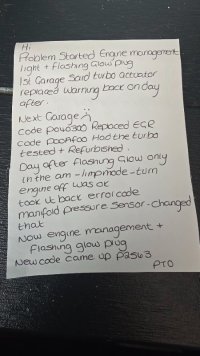 Hi,
Problem Started Engine management
light + flashing Glow plug
1st Garage Said turbo actuator
replaced warning back on day
after.
Next Garage
code P040300 Replaced EGR
code P00AF00 Had the turbo
tested + Refurbished.
Day after flashing Glow only
in the am - limpmode - turn
engine off was ok
took it back error code
manifold pressure sensor - changed
that
Now engine management +
flashing glow plug
New code came up P2563
PTO